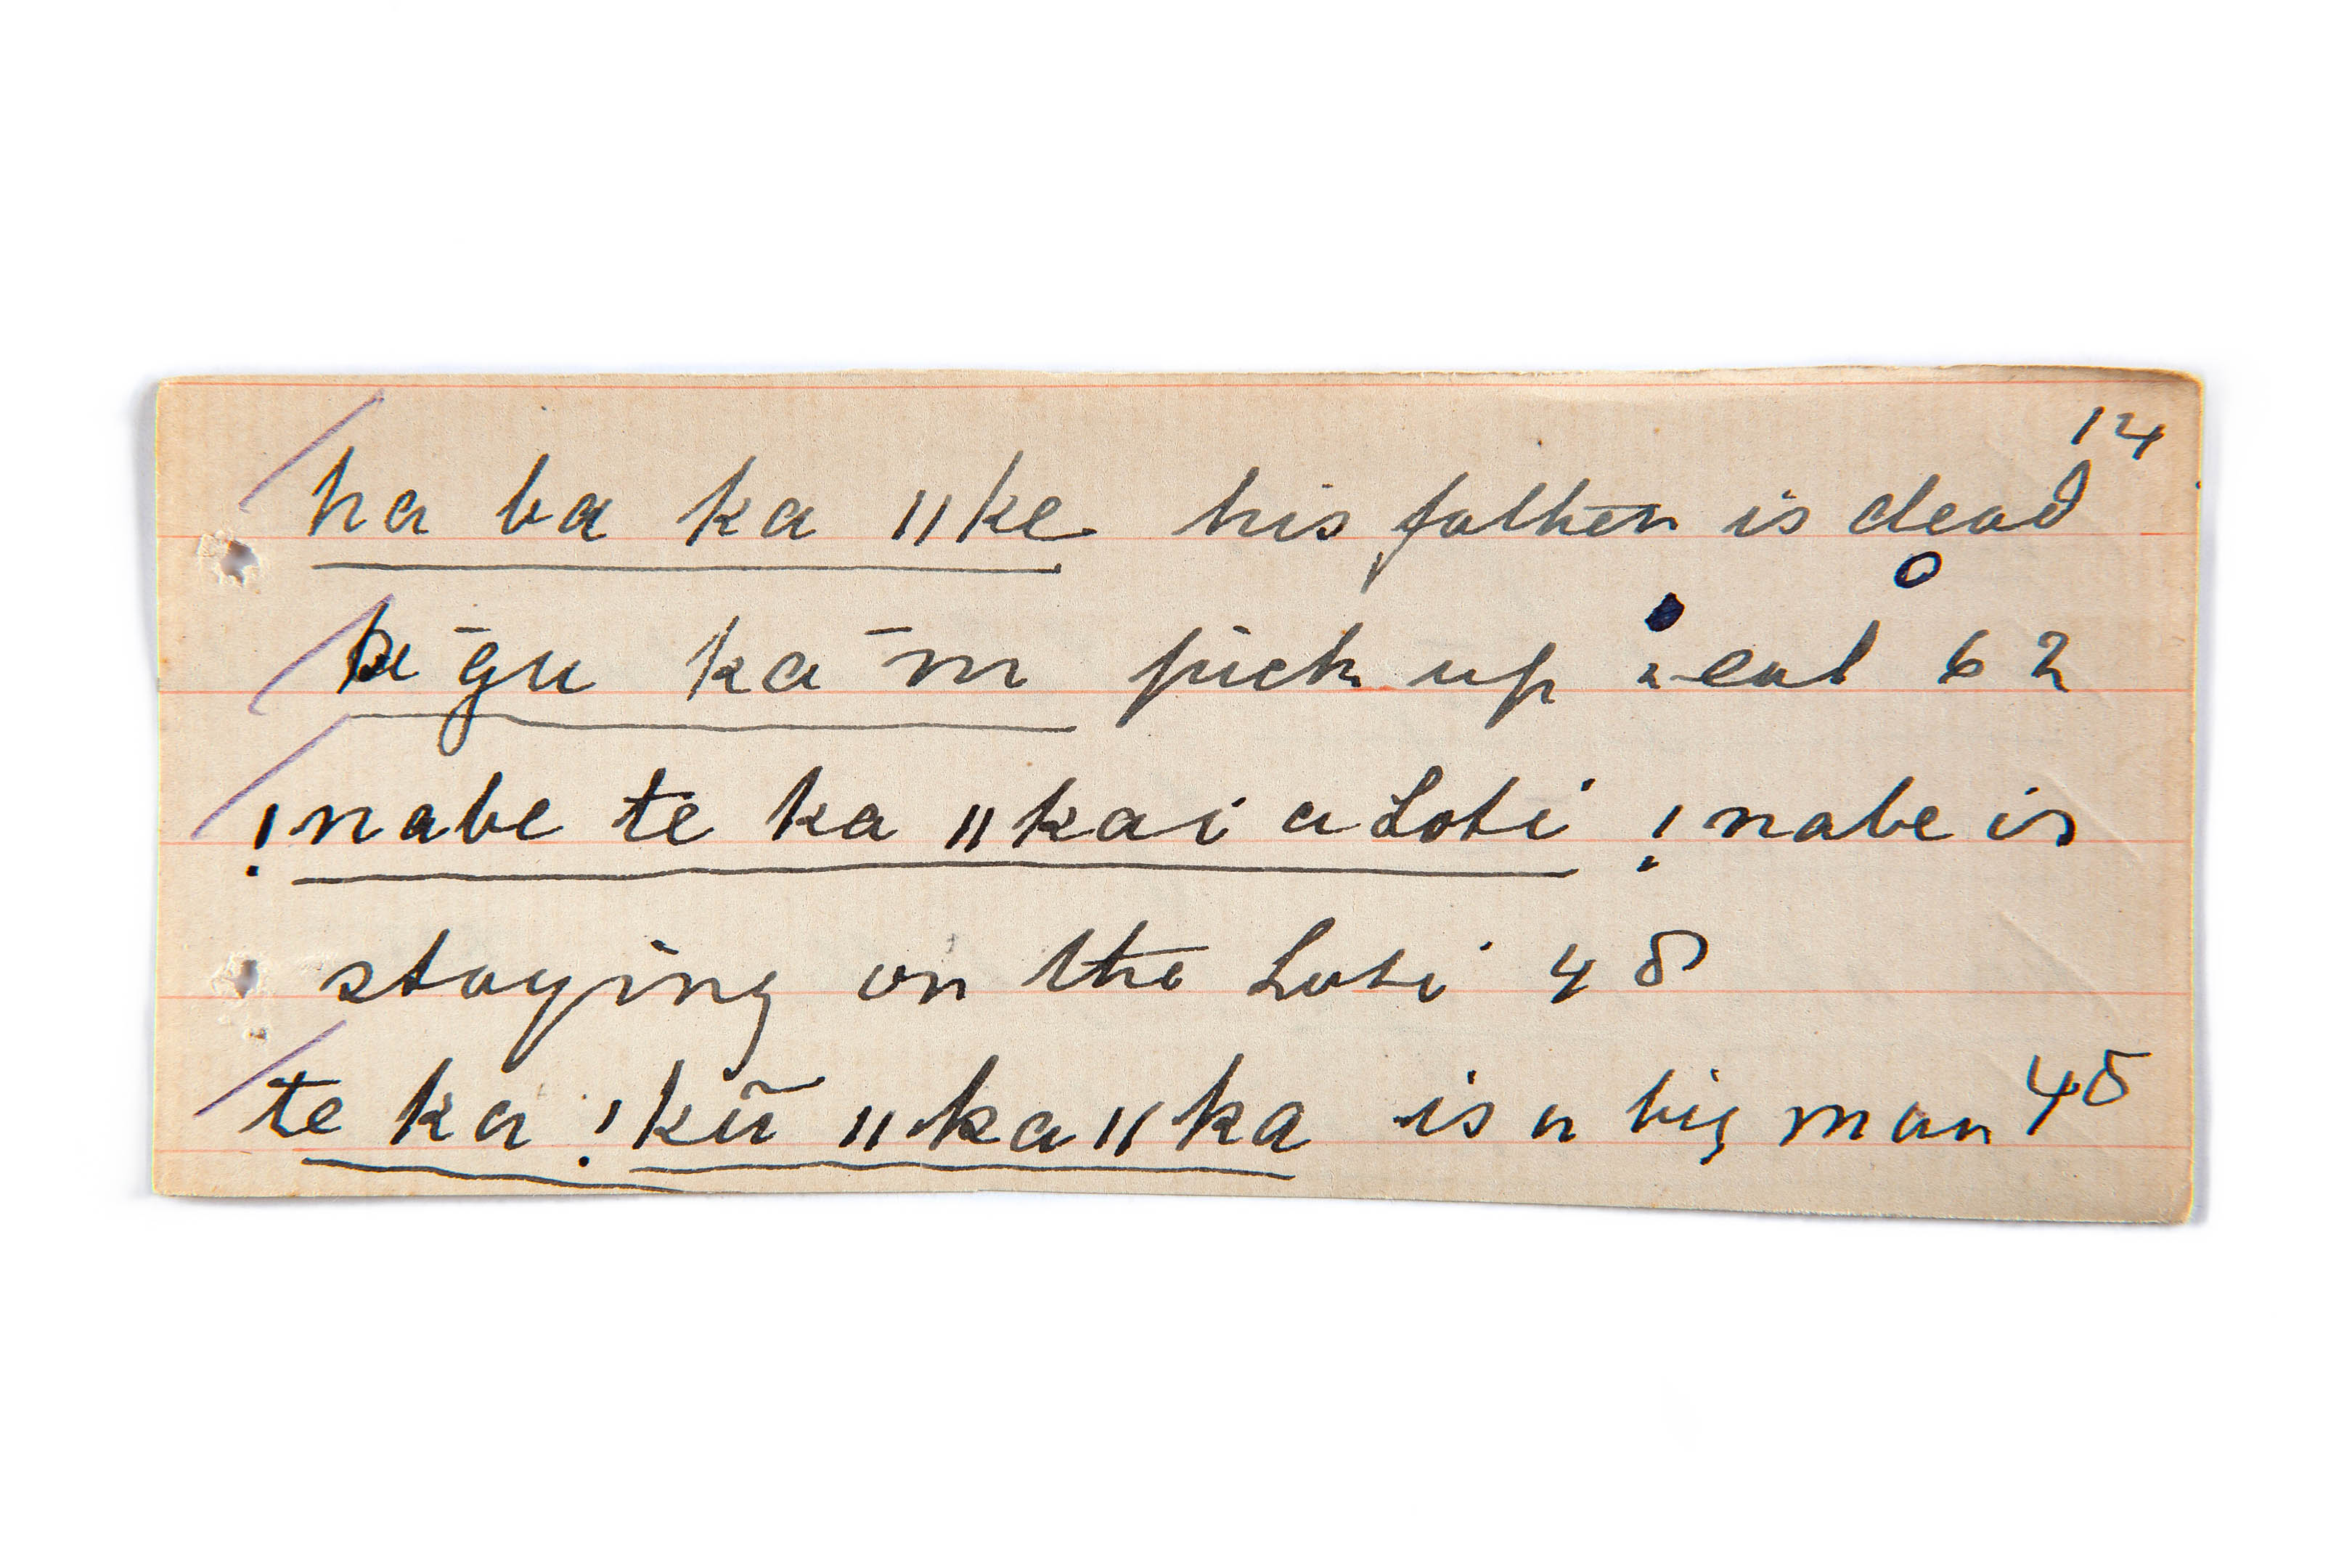 14
ha ba ka ǁke his father is dead
gu ka m̄ pick up & eat 62
!nabe te ka ǁkai a Loti !nabe is
staying on the Loti 48
te ka !kū ǁkaǁka is a big man 45